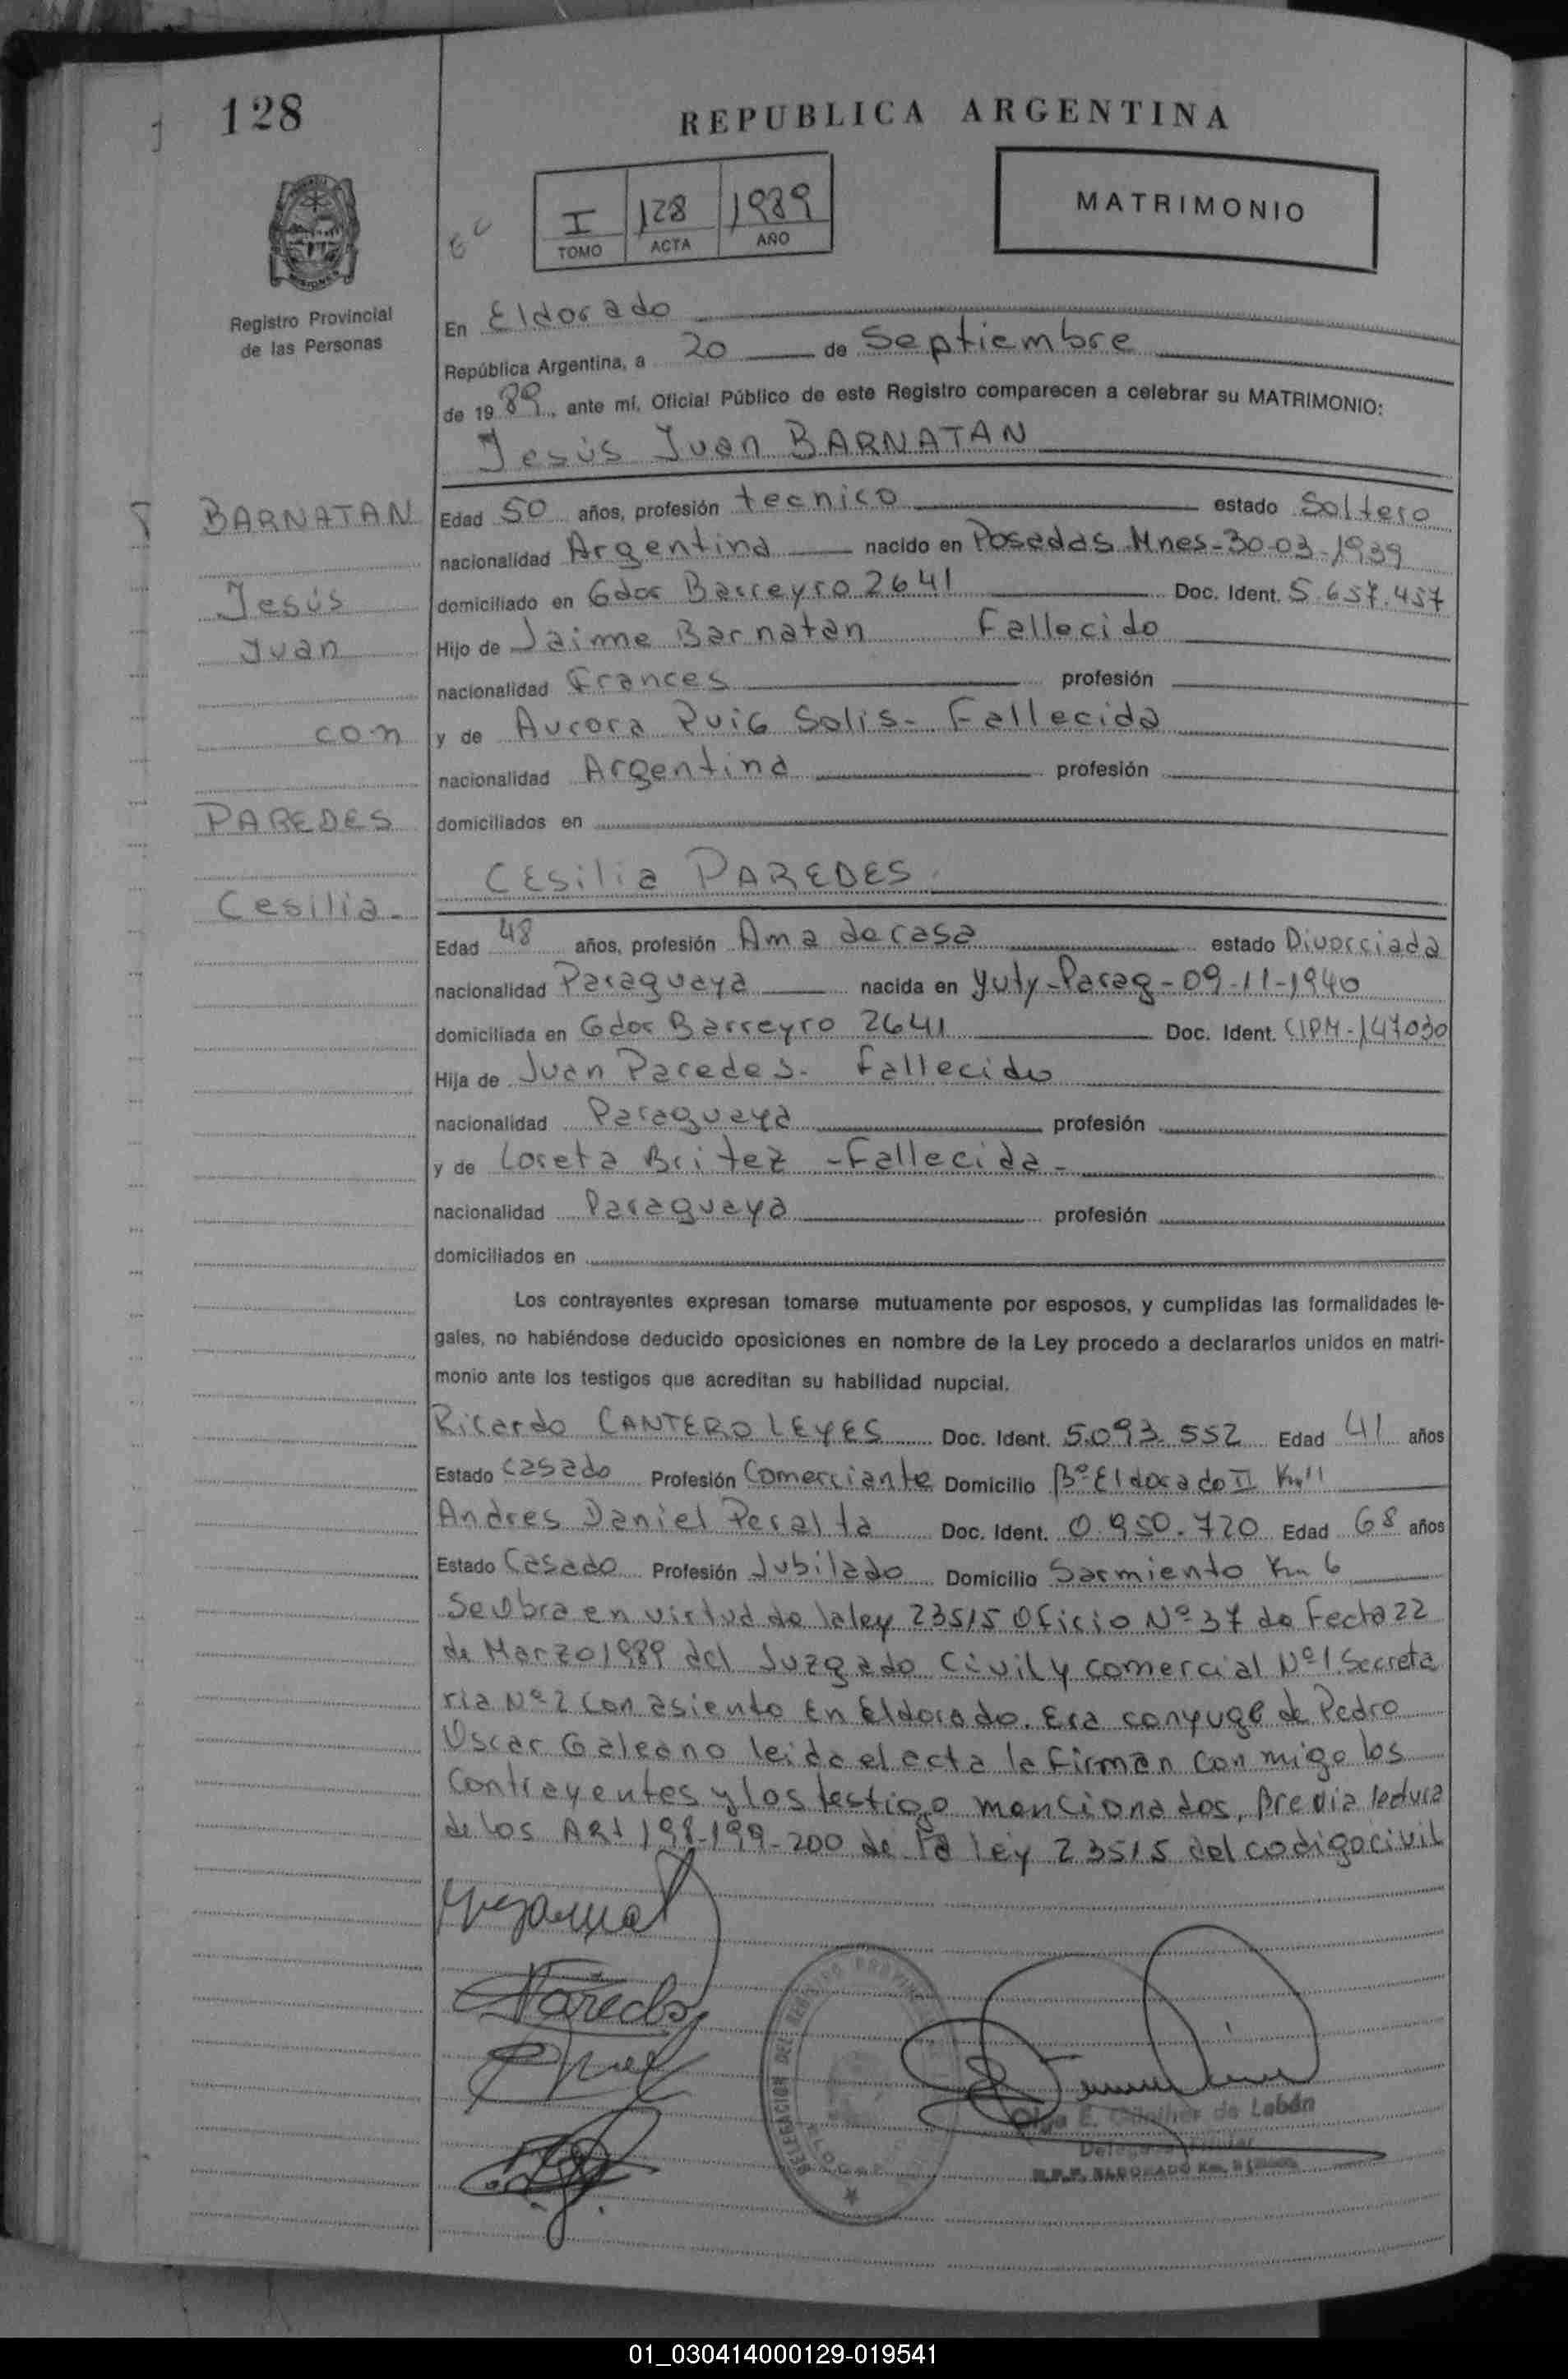 128
REPUBLICA ARGENTINA
I 128 1989
TOMO ACTA AÑO
MATRIMONIO
Registro Provincial
de las Personas
En Eldorado
República Argentina, a 20 de Septiembre
de 1989, ante mí, Oficial Público de este Registro comparecen a celebrar su MATRIMONIO:
Jesús Juan BARNATAN
BARNATAN
Jesús
Juan
con
PAREDES
Cesilia-
Edad 50 años, profesión tecnico estado Soltero
nacionalidad Argentina nacido en Posadas Mnes-30-03-1939
domiciliado en Gdor Barreyro 2641 Doc. Ident. 5.657.457
Hijo de Jaime Barnatan Fallecido
nacionalidad Frances profesión
y de Aurora Puig Solis- Fallecida
nacionalidad Argentina profesión
domiciliados en
CEsilia PAREDES
Edad 48 años, profesión Ama de casa estado Divorciada
nacionalidad Paraguaya nacida en Yuty-Parag-09-11-1940
domiciliada en Gdor Barreyro 2641 Doc. Ident. CIPM-147030
Hija de Juan Paredes- Fallecido
nacionalidad Paraguaya profesión
y de Loreta Britez -Fallecida-
nacionalidad Paraguaya profesión
domiciliados en
Los contrayentes expresan tomarse mutuamente por esposos, y cumplidas las formalidades le-
gales, no habiéndose deducido oposiciones en nombre de la Ley procedo a declararlos unidos en matri-
monio ante los testigos que acreditan su habilidad nupcial.
Ricardo CANTERO LEYES Doc. Ident. 5.093.552 Edad 41 años
Estado casado Profesión Comerciante Domicilio Bº Eldorado II Km 11
Andres Daniel Peralta Doc. Ident. 0.950.720 Edad 68 años
Estado Casado Profesión Jubilado Domicilio Sarmiento Km 6
Se Obra en virtud de la ley 23515 Oficio Nº 37 de Fecha 22
de Marzo 1989 del Juzgado Civil y comercial Nº 1 Secreta
ria Nº 2 con asiento En Eldorado. Era conyuge de Pedro
Oscar Galeano leida el acta la firman con migo los
Contrayentes y los testigo mencionados, previa lectura
de los ARt 198-199-200 de la ley 23515 del codigo civil
Paredes
DELEGACION DEL REGISTRO PROVINCIAL
Olga E. Günther de Labán
Delegada Titular
R.P.P. ELDORADO Km.
01_030414000129-019541